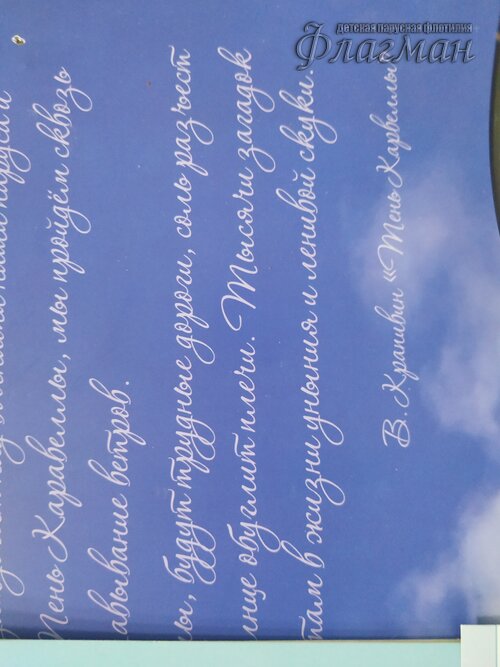 детская парусная флотилия
Флагман
паруса и
Тень Каравеллы, мы пройдём сквозь
авывание ветров.
ы, будут трудные дороги, соль разъест
нце обуглит плечи. Тысячи загадок
там в жизни уныния и ленивой скуки.
В. Крапивин «Тень Карвеллы»